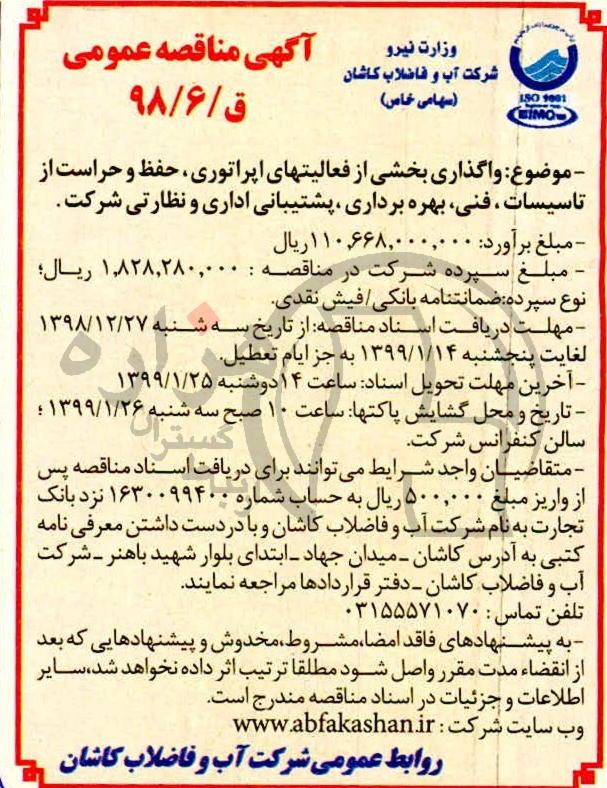 وزارت نیرو
شرکت آب و فاضلاب کاشان
(سهامی خاص)
ISO 9001
آگهی مناقصه عمومی
ق/۹۸/۶
-موضوع: واگذاری بخشی از فعالیتهای اپراتوری، حفظ و حراست از
تاسیسات، فنی، بهره برداری، پشتیبانی اداری و نظارتی شرکت.
-مبلغ برآورد: ۱۱۰,۶۶۸,۰۰۰,۰۰۰ ریال
- مبلغ سپرده شرکت در مناقصه : ۱,۸۲۸,۲۸۰,۰۰۰ ریال؛
نوع سپرده:ضمانتنامه بانکی/فیش نقدی.
-مهلت دریافت اسناد مناقصه: از تاریخ سه شنبه ۱۳۹۸/۱۲/۲۷
لغایت پنجشنبه ۱۳۹۹/۱/۱۴ به جز ایام تعطیل.
-آخرین مهلت تحویل اسناد: ساعت ۱۴ دوشنبه ۱۳۹۹/۱/۲۵
- تاریخ و محل گشایش پاکتها: ساعت ۱۰ صبح سه شنبه ۱۳۹۹/۱/۲۶ ؛
سالن کنفرانس شرکت.
-متقاضیان واجد شرایط می‌توانند برای دریافت اسناد مناقصه پس
از واریز مبلغ ۵۰۰,۰۰۰ ریال به حساب شماره ۱۶۳۰۰۹۹۴۰۰ نزد بانک
تجارت به نام شرکت آب و فاضلاب کاشان و با در دست داشتن معرفی نامه
کتبی به آدرس کاشان -میدان جهاد -ابتدای بلوار شهید باهنر -شرکت
آب و فاضلاب کاشان -دفتر قراردادها مراجعه نمایند.
تلفن تماس: ۰۳۱۵۵۵۷۱۰۷۰
-به پیشنهادهای فاقد امضا،مشروط،مخدوش و پیشنهادهایی که بعد
از انقضاء مدت مقرر واصل شود مطلقا ترتیب اثر داده نخواهد شد،سایر
اطلاعات و جزئیات در اسناد مناقصه مندرج است.
وب سایت شرکت: www.abfakashan.ir
روابط عمومی شرکت آب و فاضلاب کاشان